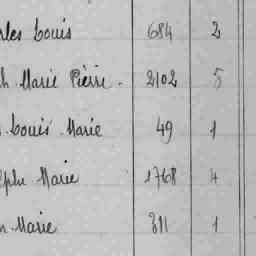 rles Louis 684 2
h Marie Pierre 2102 5
Louis Marie 49 1
lphe Marie 1768 4
n Marie 311 1